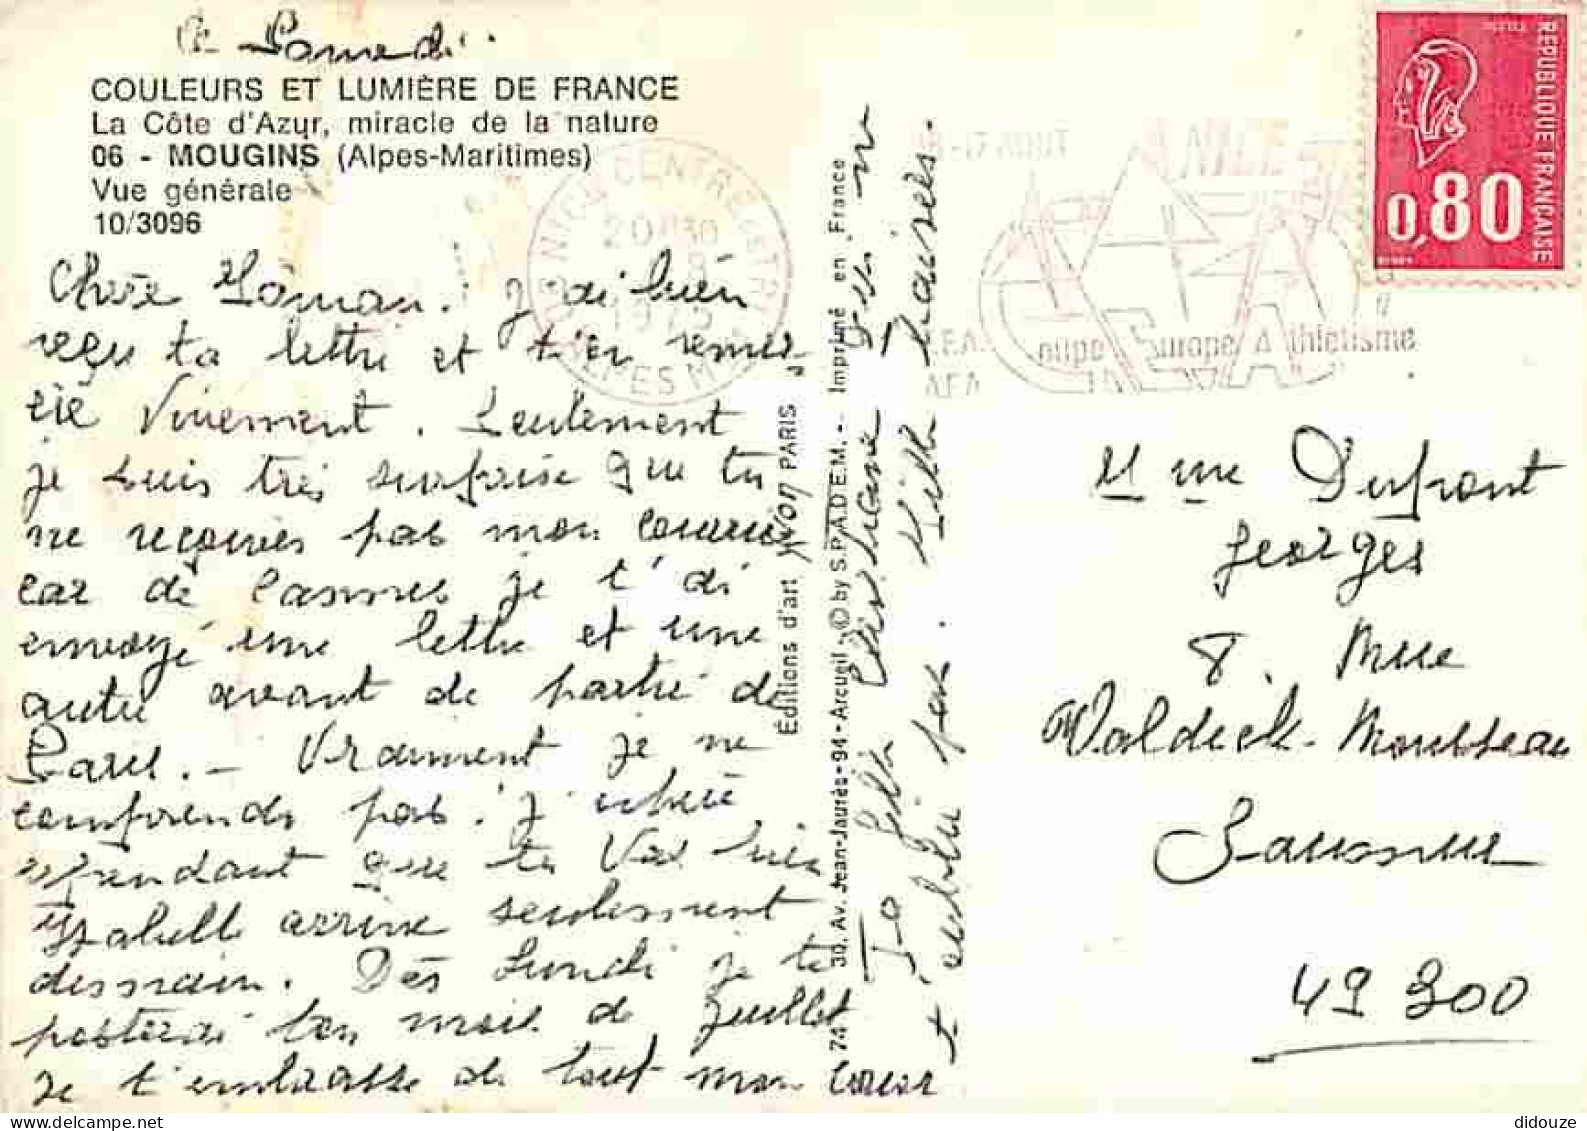 Ce Samedi.
COULEURS ET LUMIÈRE DE FRANCE
La Côte d'Azur, miracle de la nature
06 - MOUGINS (Alpes-Maritimes)
Vue générale
10/3096
Chère Maman. J'ai bien
reçu ta lettre et t'en remer-
cie vivement. Seulement
je suis très surprise que tu
ne reçoives pas mon courrier
car de Cannes je t'ai
envoyé une lettre et une
autre avant de partir de
Paris. - Vraiment je ne
comprends pas. J'
cependant que tu vas bien
Isabelle arrive seulement
demain. Dès Lundi je te
posterai ton mois de Juillet
Je t'embrasse de tout mon coeur
Ta fille Christiane qui ne
t'oublie pas. Mille baisers.
Éditions d'art YVON PARIS
74 30, Av. Jean-Jaurès-94-Arcueil - © by S.P.A.D.E.M. -- Imprimé en France
NICE CENTRE
20H30
ALPES MMES
A NICE
Coupe d'Europe d'Athlétisme
REPUBLIQUE FRANÇAISE
0,80
Mme Dufront
Georges
8. Rue
Waldeck-Rousseau
Saumur
49300
didouze